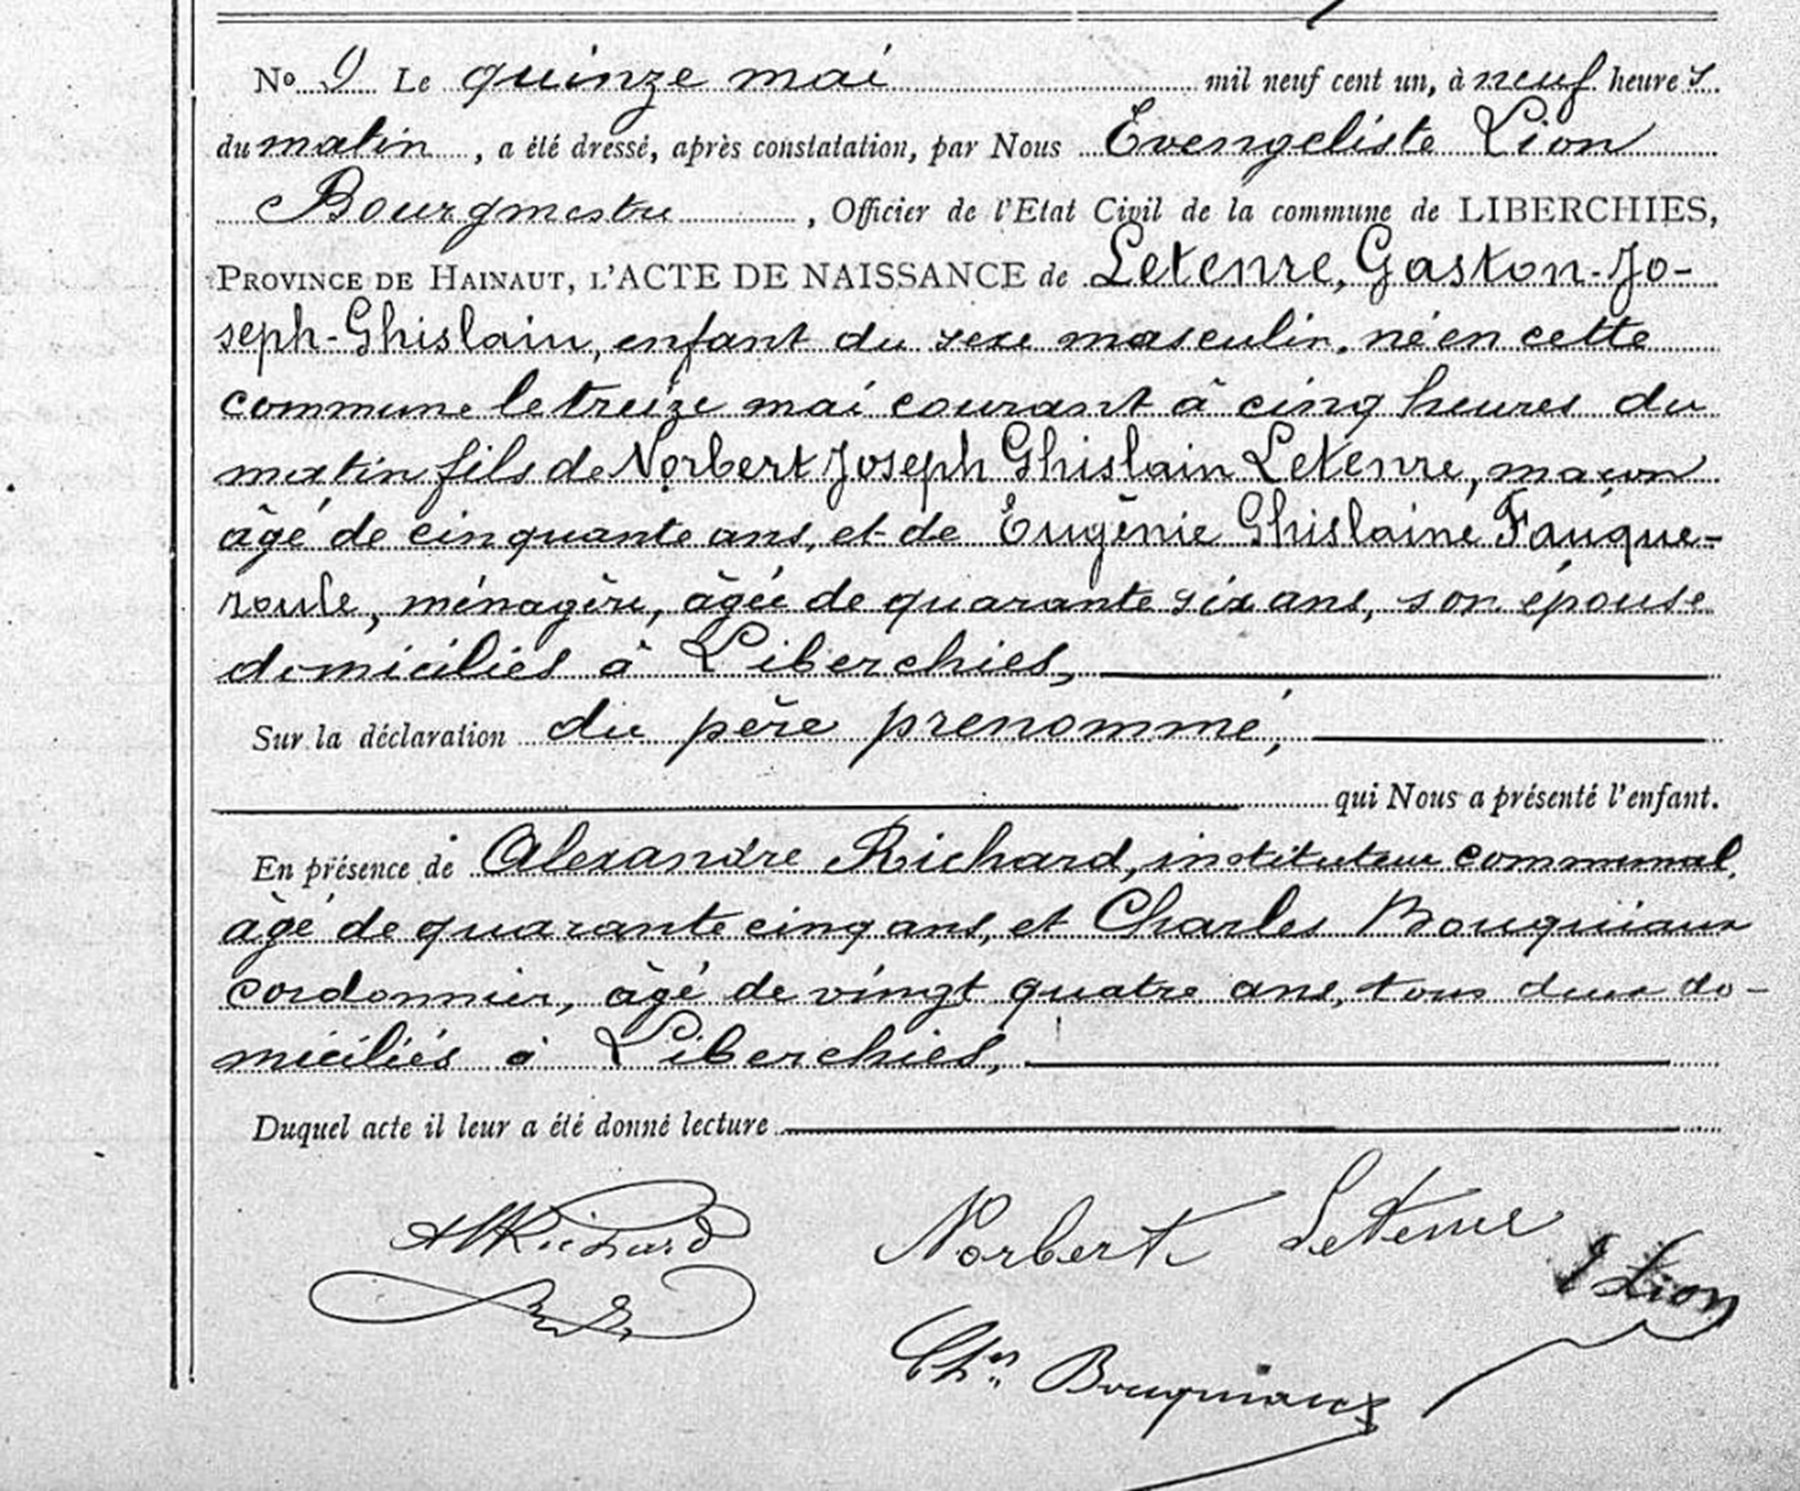 N° 9 Le quinze mai mil neuf cent un, à neuf heures
du matin, a été dressé, après constatation, par Nous Evengeliste Lion
Bourgmestre, Officier de l'Etat Civil de la commune de LIBERCHIES,
PROVINCE DE HAINAUT, L'ACTE DE NAISSANCE de Letenre, Gaston-Jo-
seph-Ghislain, enfant du sexe masculin, né en cette
commune le treize mai courant à cinq heures du
matin fils de Norbert Joseph Ghislain Letenre, maçon
âgé de cinquante ans, et de Eugènie Ghislaine Fauque-
roule, ménagère, âgée de quarante six ans, son épouse
domiciliés à Liberchies,
Sur la déclaration du père prenommé,
qui Nous a présenté l'enfant.
En présence de Alexandre Richard, instituteur communal,
âgé de quarante cinq ans, et Charles Bouquiaux
cordonnier, âgé de vingt quatre ans, tous deux do-
miciliés à Liberchies,
Duquel acte il leur a été donné lecture
Richard Norbert Letenre
Lion
Ches Bouquiaux